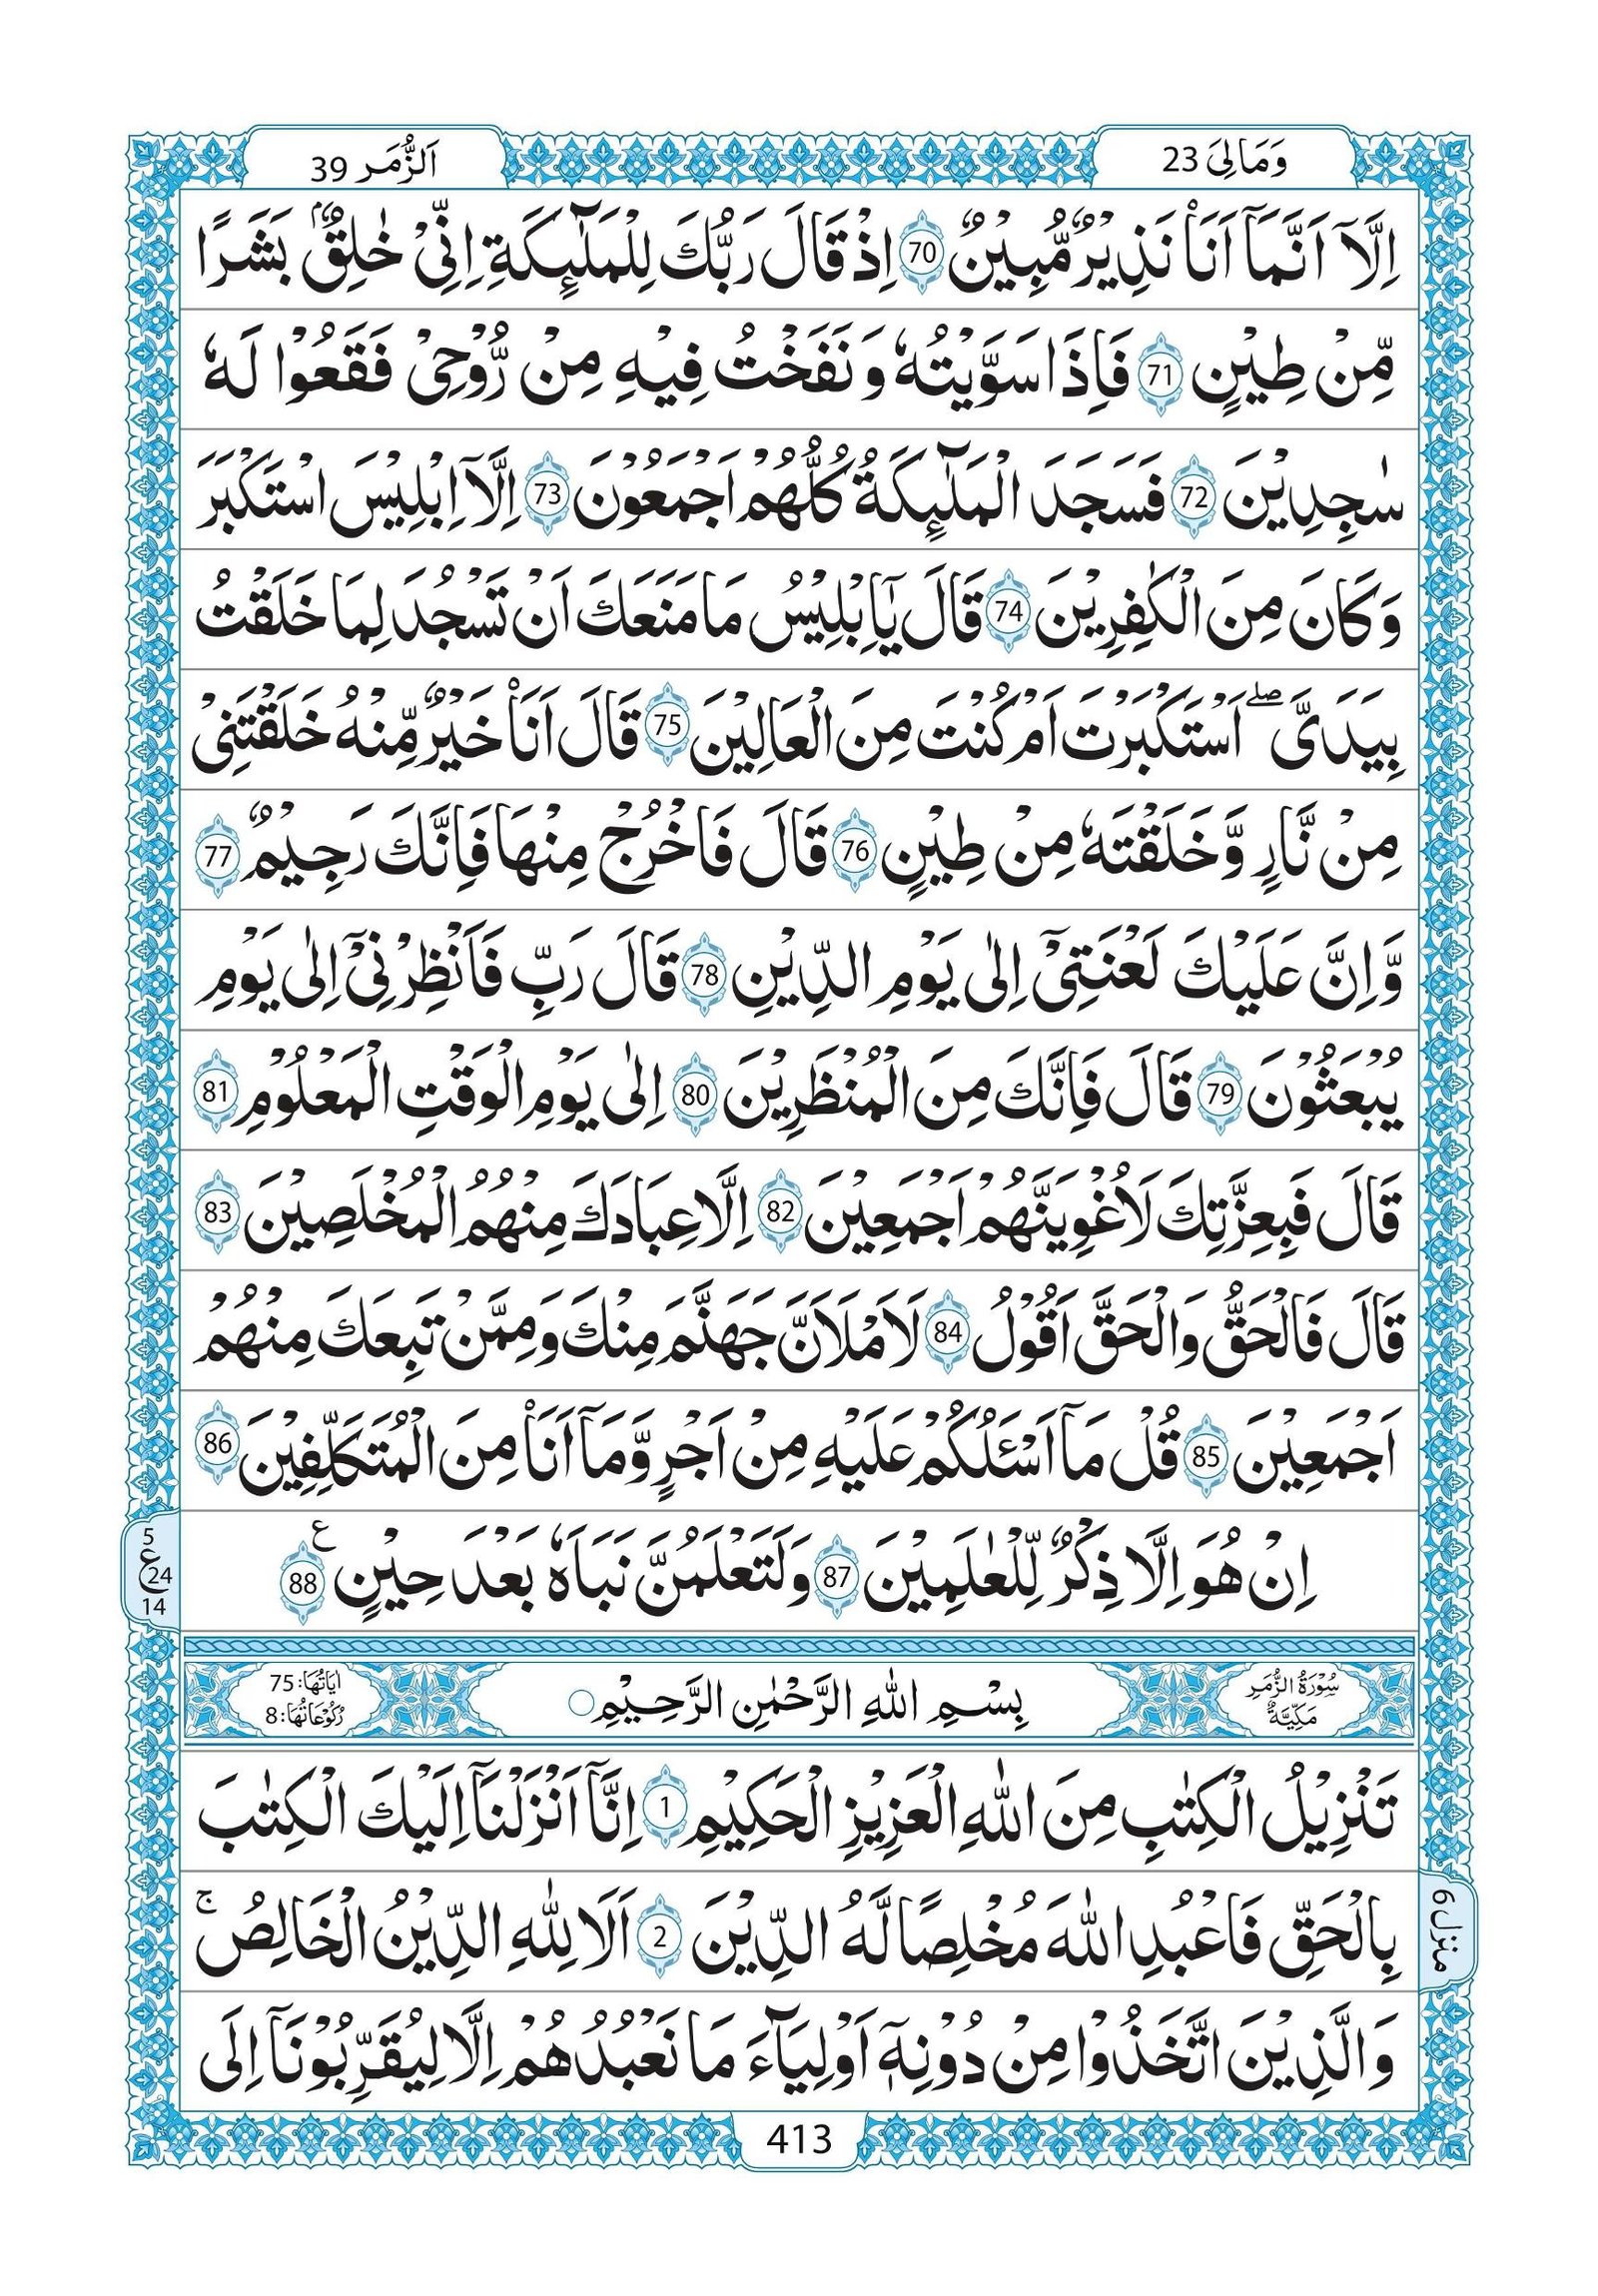 وَمَالِیَ 23
اَلزُّمَر 39
اِلَّاۤ اَنَّمَاۤ اَنَا۠ نَذِیْرٌ مُّبِیْنٌ 70 اِذْ قَالَ رَبُّكَ لِلْمَلٰٓىِٕكَةِ اِنِّیْ خَالِقٌۢ بَشَرًا
مِّنْ طِیْنٍ 71 فَاِذَا سَوَّیْتُهٗ وَ نَفَخْتُ فِیْهِ مِنْ رُّوْحِیْ فَقَعُوْا لَهٗ
سٰجِدِیْنَ 72 فَسَجَدَ الْمَلٰٓىِٕكَةُ كُلُّهُمْ اَجْمَعُوْنَ 73 اِلَّاۤ اِبْلِیْسَ اسْتَكْبَرَ
وَكَانَ مِنَ الْكٰفِرِیْنَ 74 قَالَ یٰۤاِبْلِیْسُ مَا مَنَعَكَ اَنْ تَسْجُدَ لِمَا خَلَقْتُ
بِیَدَیَّ ۖ اَسْتَكْبَرْتَ اَمْ كُنْتَ مِنَ الْعَالِیْنَ 75 قَالَ اَنَا۠ خَیْرٌ مِّنْهُ خَلَقْتَنِیْ
مِنْ نَّارٍ وَّخَلَقْتَهٗ مِنْ طِیْنٍ 76 قَالَ فَاخْرُجْ مِنْهَا فَاِنَّكَ رَجِیْمٌ 77
وَّاِنَّ عَلَیْكَ لَعْنَتِیْۤ اِلٰی یَوْمِ الدِّیْنِ 78 قَالَ رَبِّ فَاَنْظِرْنِیْۤ اِلٰی یَوْمِ
یُبْعَثُوْنَ 79 قَالَ فَاِنَّكَ مِنَ الْمُنْظَرِیْنَ 80 اِلٰی یَوْمِ الْوَقْتِ الْمَعْلُوْمِ 81
قَالَ فَبِعِزَّتِكَ لَاُغْوِیَنَّهُمْ اَجْمَعِیْنَ 82 اِلَّا عِبَادَكَ مِنْهُمُ الْمُخْلَصِیْنَ 83
قَالَ فَالْحَقُّ وَالْحَقَّ اَقُوْلُ 84 لَاَمْلَاَنَّ جَهَنَّمَ مِنْكَ وَمِمَّنْ تَبِعَكَ مِنْهُمْ
اَجْمَعِیْنَ 85 قُلْ مَاۤ اَسْـَٔلُكُمْ عَلَیْهِ مِنْ اَجْرٍ وَّمَاۤ اَنَا۠ مِنَ الْمُتَكَلِّفِیْنَ 86
اِنْ هُوَ اِلَّا ذِكْرٌ لِّلْعٰلَمِیْنَ 87 وَلَتَعْلَمُنَّ نَبَاَهٗ بَعْدَ حِیْنٍ ع 88
5
ع 24
14
سُوْرَةُ الزُّمَرِ
مَكِّیَّةٌ
بِسْمِ اللّٰهِ الرَّحْمٰنِ الرَّحِیْمِ
اٰیَاتُهَا: 75
رُكُوْعَاتُهَا: 8
تَنْزِیْلُ الْكِتٰبِ مِنَ اللّٰهِ الْعَزِیْزِ الْحَكِیْمِ 1 اِنَّاۤ اَنْزَلْنَاۤ اِلَیْكَ الْكِتٰبَ
بِالْحَقِّ فَاعْبُدِ اللّٰهَ مُخْلِصًا لَّهُ الدِّیْنَ 2 اَلَا لِلّٰهِ الدِّیْنُ الْخَالِصُ ۚ
منزل 6
وَالَّذِیْنَ اتَّخَذُوْا مِنْ دُوْنِهٖۤ اَوْلِیَآءَ مَا نَعْبُدُهُمْ اِلَّا لِیُقَرِّبُوْنَاۤ اِلَی
413